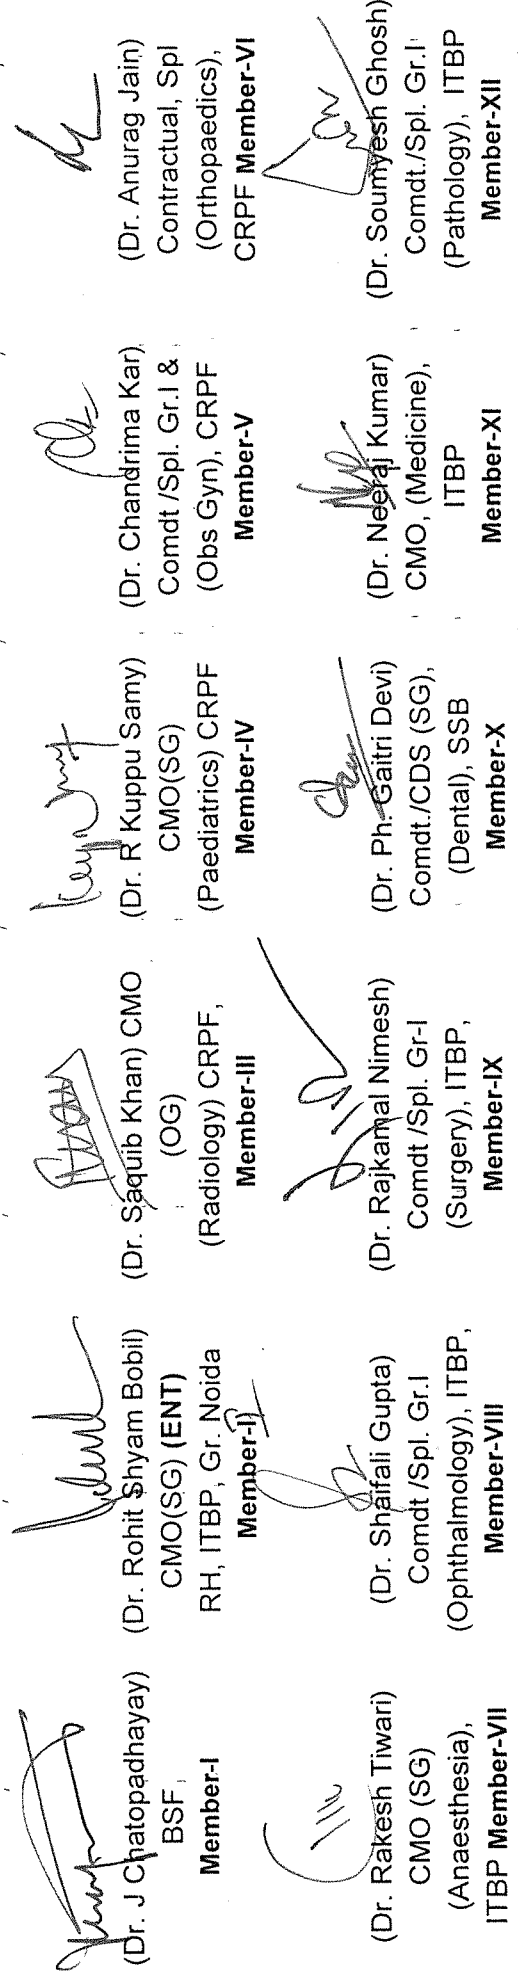 (Dr. J Chatopadhayay)
BSF,
Member-I
(Dr. Rohit Shyam Bobil)
CMO(SG) (ENT)
RH, ITBP, Gr. Noida
Member-II
(Dr. Saquib Khan) CMO
(OG)
(Radiology) CRPF,
Member-III
(Dr. R Kuppu Samy)
CMO(SG)
(Paediatrics) CRPF
Member-IV
(Dr. Chandrima Kar)
Comdt /Spl. Gr.I &
(Obs Gyn), CRPF
Member-V
(Dr. Anurag Jain)
Contractual, Spl
(Orthopaedics),
CRPF Member-VI
(Dr. Rakesh Tiwari)
CMO (SG)
(Anaesthesia),
ITBP Member-VII
(Dr. Shaifali Gupta)
Comdt /Spl. Gr.I
(Ophthalmology), ITBP,
Member-VIII
(Dr. Rajkamal Nimesh)
Comdt /Spl. Gr-I
(Surgery), ITBP,
Member-IX
(Dr. Ph. Gaitri Devi)
Comdt./CDS (SG),
(Dental), SSB
Member-X
(Dr. Neeraj Kumar)
CMO, (Medicine),
ITBP
Member-XI
(Dr. Soumyesh Ghosh)
Comdt./Spl. Gr.I
(Pathology), ITBP
Member-XII